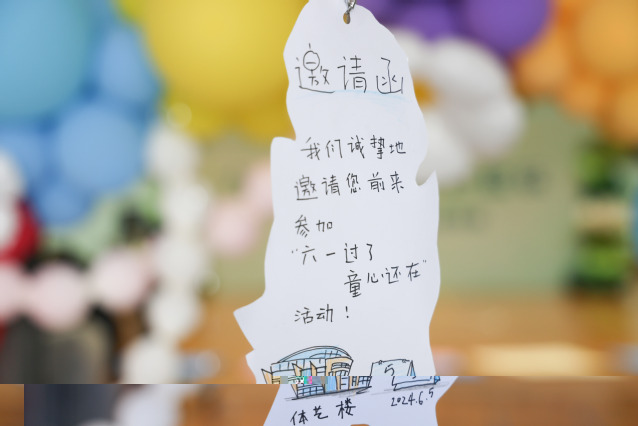 邀请函
我们诚挚地
邀请您前来
参加
“六一过了
童心还在”
活动！
体艺楼
2024.6.5